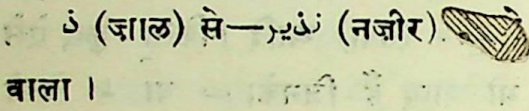 ذ (ज़ाल) से—نذیر (नज़ीर)
वाला ।